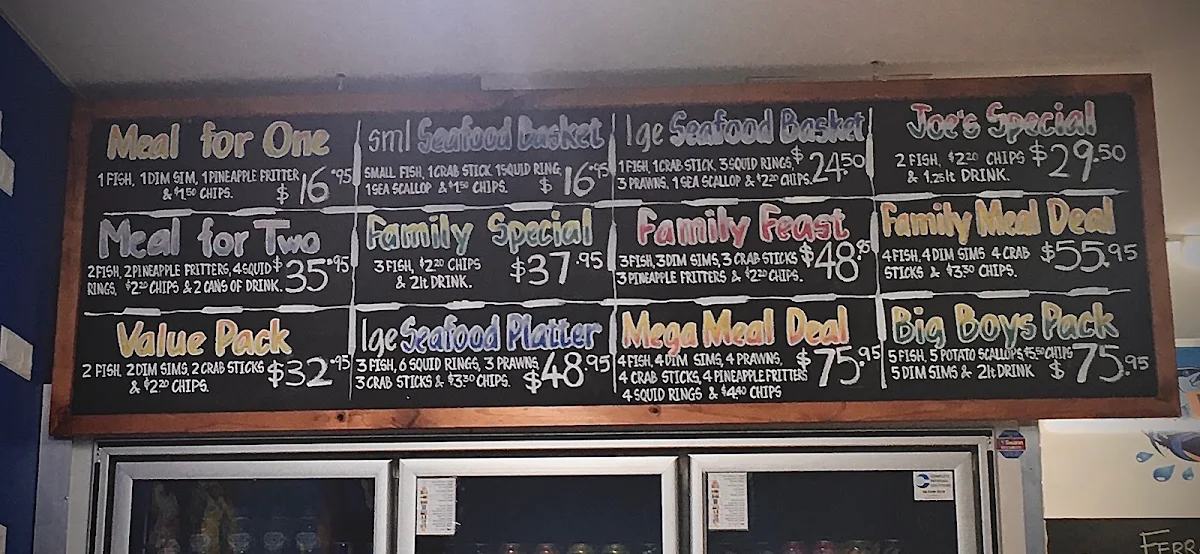 Meal for One
1 FISH, 1 DIM SIM, 1 PINEAPPLE FRITTER
& $1.50 CHIPS. $16.95
sml Seafood Basket
SMALL FISH, 1 CRAB STICK 1 SQUID RING,
1 SEA SCALLOP & $1.50 CHIPS. $16.95
lge Seafood Basket
1 FISH, 1 CRAB STICK, 3 SQUID RINGS
3 PRAWNS, 1 SEA SCALLOP & $2.20 CHIPS. $24.50
Joe's Special
2 FISH, $2.20 CHIPS $29.50
& 1.25lt DRINK.
Meal for Two
2 FISH, 2 PINEAPPLE FRITTERS, 4 SQUID
RINGS, $2.20 CHIPS & 2 CANS OF DRINK. $35.95
Family Special
3 FISH, $2.20 CHIPS
& 2lt DRINK. $37.95
Family Feast
3 FISH, 3 DIM SIMS, 3 CRAB STICKS $48.95
3 PINEAPPLE FRITTERS & $2.20 CHIPS.
Family Meal Deal
4 FISH, 4 DIM SIMS 4 CRAB $55.95
STICKS & $3.30 CHIPS.
Value Pack
2 FISH, 2 DIM SIMS, 2 CRAB STICKS $32.95
& $2.20 CHIPS.
lge Seafood Platter
3 FISH, 6 SQUID RINGS, 3 PRAWNS
3 CRAB STICKS & $3.30 CHIPS. $48.95
Mega Meal Deal
4 FISH, 4 DIM SIMS, 4 PRAWNS, $75.95
4 CRAB STICKS, 4 PINEAPPLE FRITTERS
4 SQUID RINGS & $4.40 CHIPS
Big Boys Pack
5 FISH, 5 POTATO SCALLOPS, $5.50 CHIPS
5 DIM SIMS & 2lt DRINK $75.95